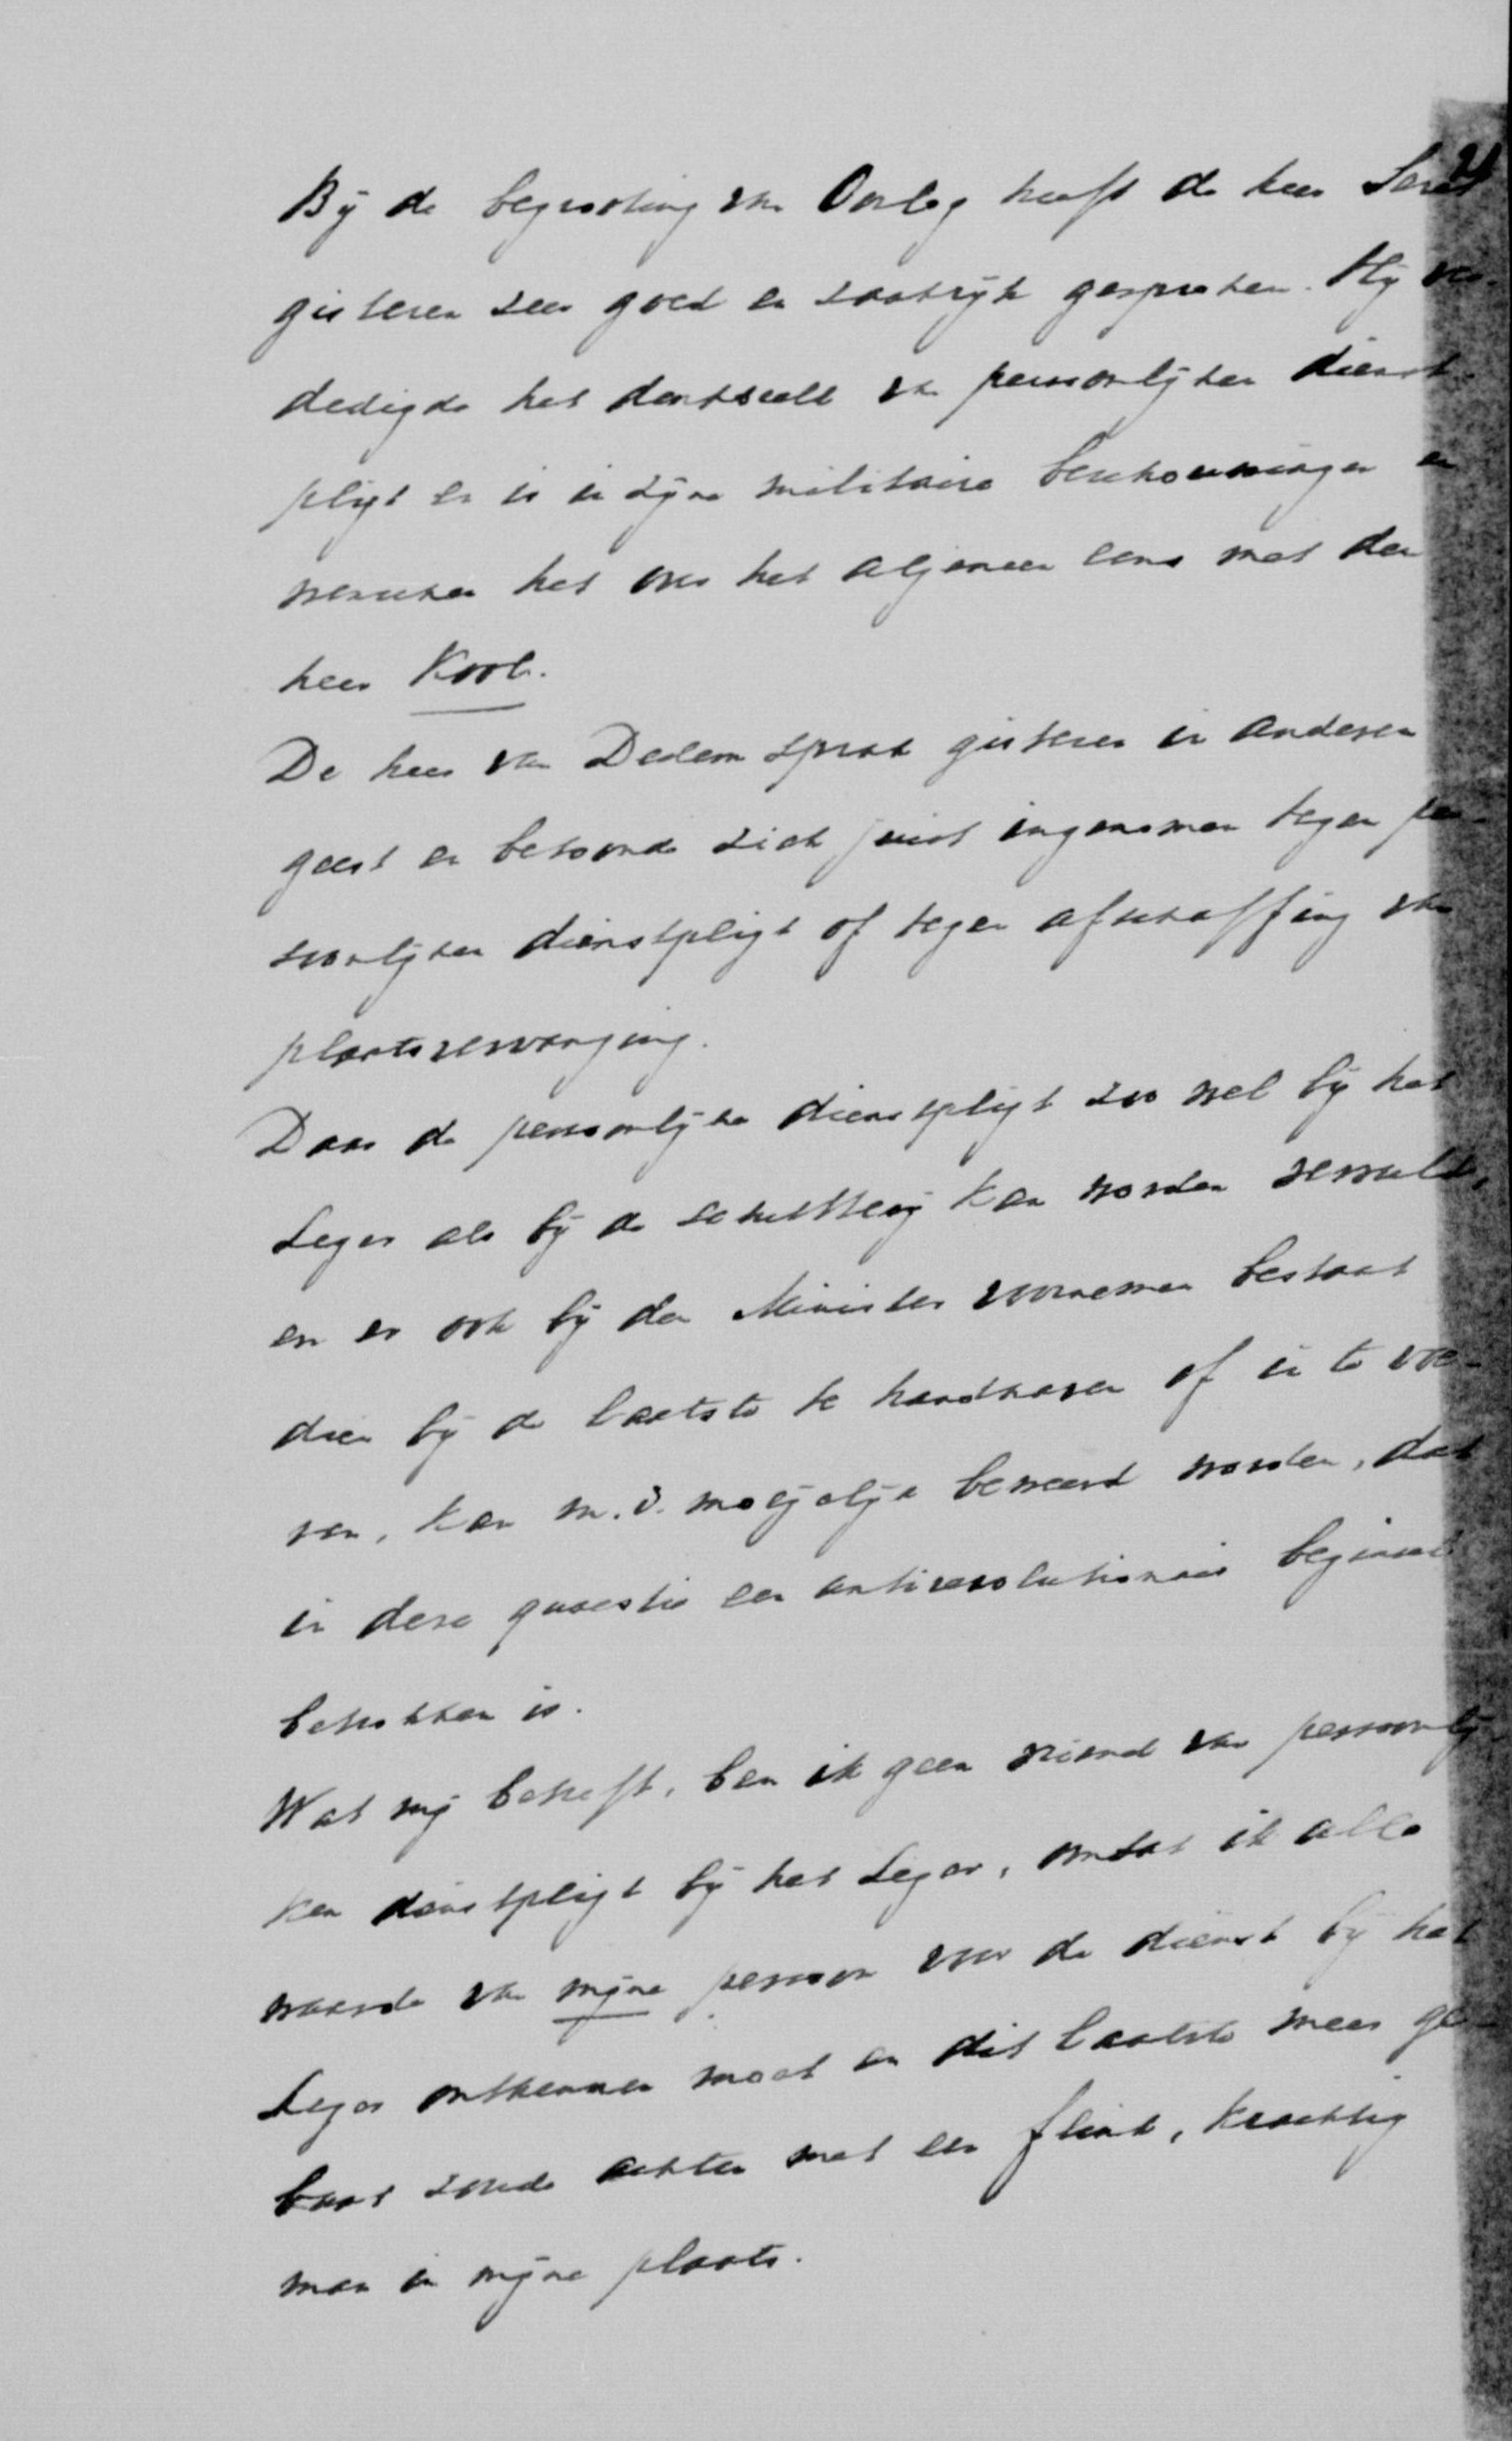 By de begrooting van Oorlog heeft de heer
gisteren zeer goed en zaakryk gesproken. Hy ver-
dedigde het denkbeeld van persoonlyken dienst-
pligt en is in zyne militaire beschouwingen en
wenschen het over het algemeen eens met den
heer Kool.
De heer van Dedem sprak gisteren in anderen
geest en betoonde zich juist ingenomen tegen per-
soonlyken dienstpligt of tegen afschaffing van
plaatsvervanging.
Daar de persoonlyke dienstpligt zoo wel by het
Leger als by de schuttery kan worden vervuld,
en er ook by den Minister voornemen bestaat
dien by de laatste te handhaven of in te voe-
ren, kan m.i. moeijelyk beweerd worden, dat
in deze quaestie een antirevolutionair beginsel
betrokken is.
Wat my betreft, ben ik geen vriend van persoonly-
ken dienstpligt by het Leger, omdat ik alle
waarde van myne persoon voor de dienst by het
Leger ontkennen moet en dit laatste meer ge-
baat zoude achten met een flink, krachtig
man in myne plaats.